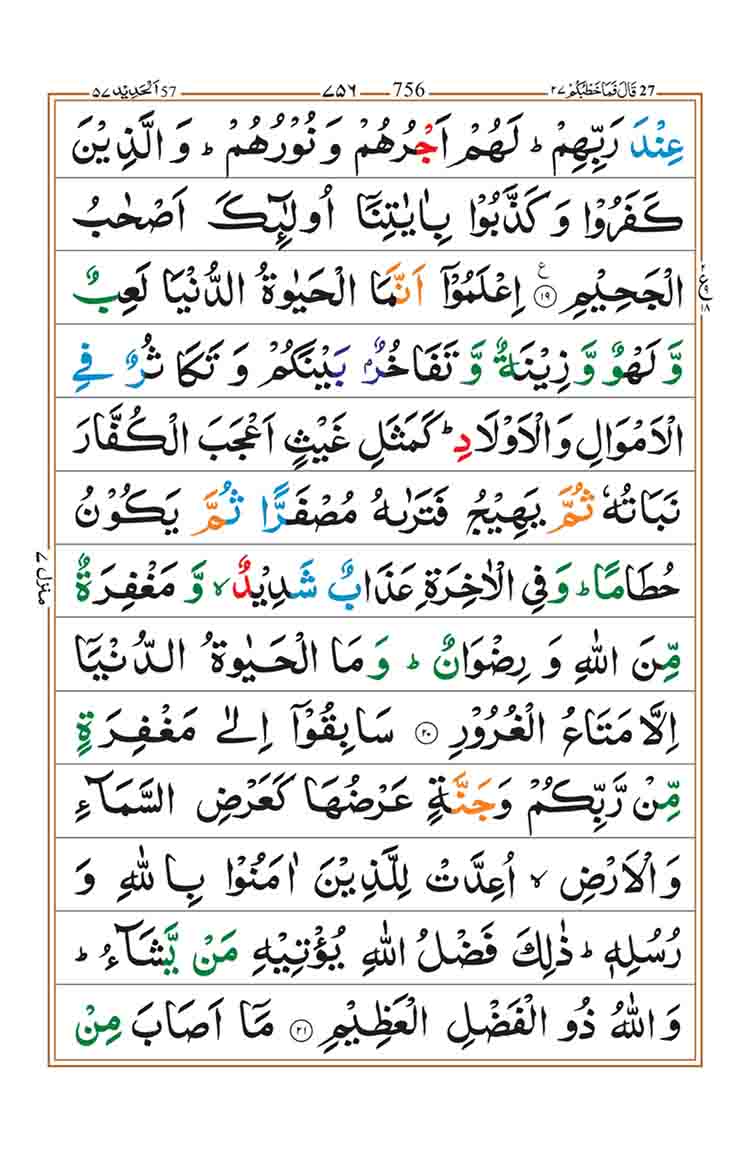 27 قَالَ فَمَا خَطْبُكُمْ ۲۷ 756 ۷۵۶ 57 اَلْحَدِيْد ۵۷
عِنْدَ رَبِّهِمْ ؕ لَهُمْ اَجْرُهُمْ وَ نُوْرُهُمْ ؕ وَ الَّذِيْنَ
كَفَرُوْا وَ كَذَّبُوْا بِاٰيٰتِنَاۤ اُولٰٓئِكَ اَصْحٰبُ
الْجَحِيْمِ ﴿۱۹﴾ ع اِعْلَمُوْۤا اَنَّمَا الْحَيٰوةُ الدُّنْيَا لَعِبٌ
وَّ لَهْوٌ وَّ زِيْنَةٌ وَّ تَفَاخُرٌۢ بَيْنَكُمْ وَ تَكَاثُرٌ فِي
الْاَمْوَالِ وَ الْاَوْلَادِ ؕ كَمَثَلِ غَيْثٍ اَعْجَبَ الْكُفَّارَ
نَبَاتُهٗ ثُمَّ يَهِيْجُ فَتَرٰىهُ مُصْفَرًّا ثُمَّ يَكُوْنُ
حُطَامًا ؕ وَ فِي الْاٰخِرَةِ عَذَابٌ شَدِيْدٌ ۙ وَّ مَغْفِرَةٌ
مِّنَ اللّٰهِ وَ رِضْوَانٌ ؕ وَ مَا الْحَيٰوةُ الدُّنْيَاۤ
اِلَّا مَتَاعُ الْغُرُوْرِ ﴿۲۰﴾ سَابِقُوْۤا اِلٰى مَغْفِرَةٍ
مِّنْ رَّبِّكُمْ وَ جَنَّةٍ عَرْضُهَا كَعَرْضِ السَّمَآءِ
وَ الْاَرْضِ ۙ اُعِدَّتْ لِلَّذِيْنَ اٰمَنُوْا بِاللّٰهِ وَ
رُسُلِهٖ ؕ ذٰلِكَ فَضْلُ اللّٰهِ يُؤْتِيْهِ مَنْ يَّشَآءُ ؕ
وَ اللّٰهُ ذُو الْفَضْلِ الْعَظِيْمِ ﴿۲۱﴾ مَاۤ اَصَابَ مِنْ
۲ ع ۹ ۱۸
منزل ۷